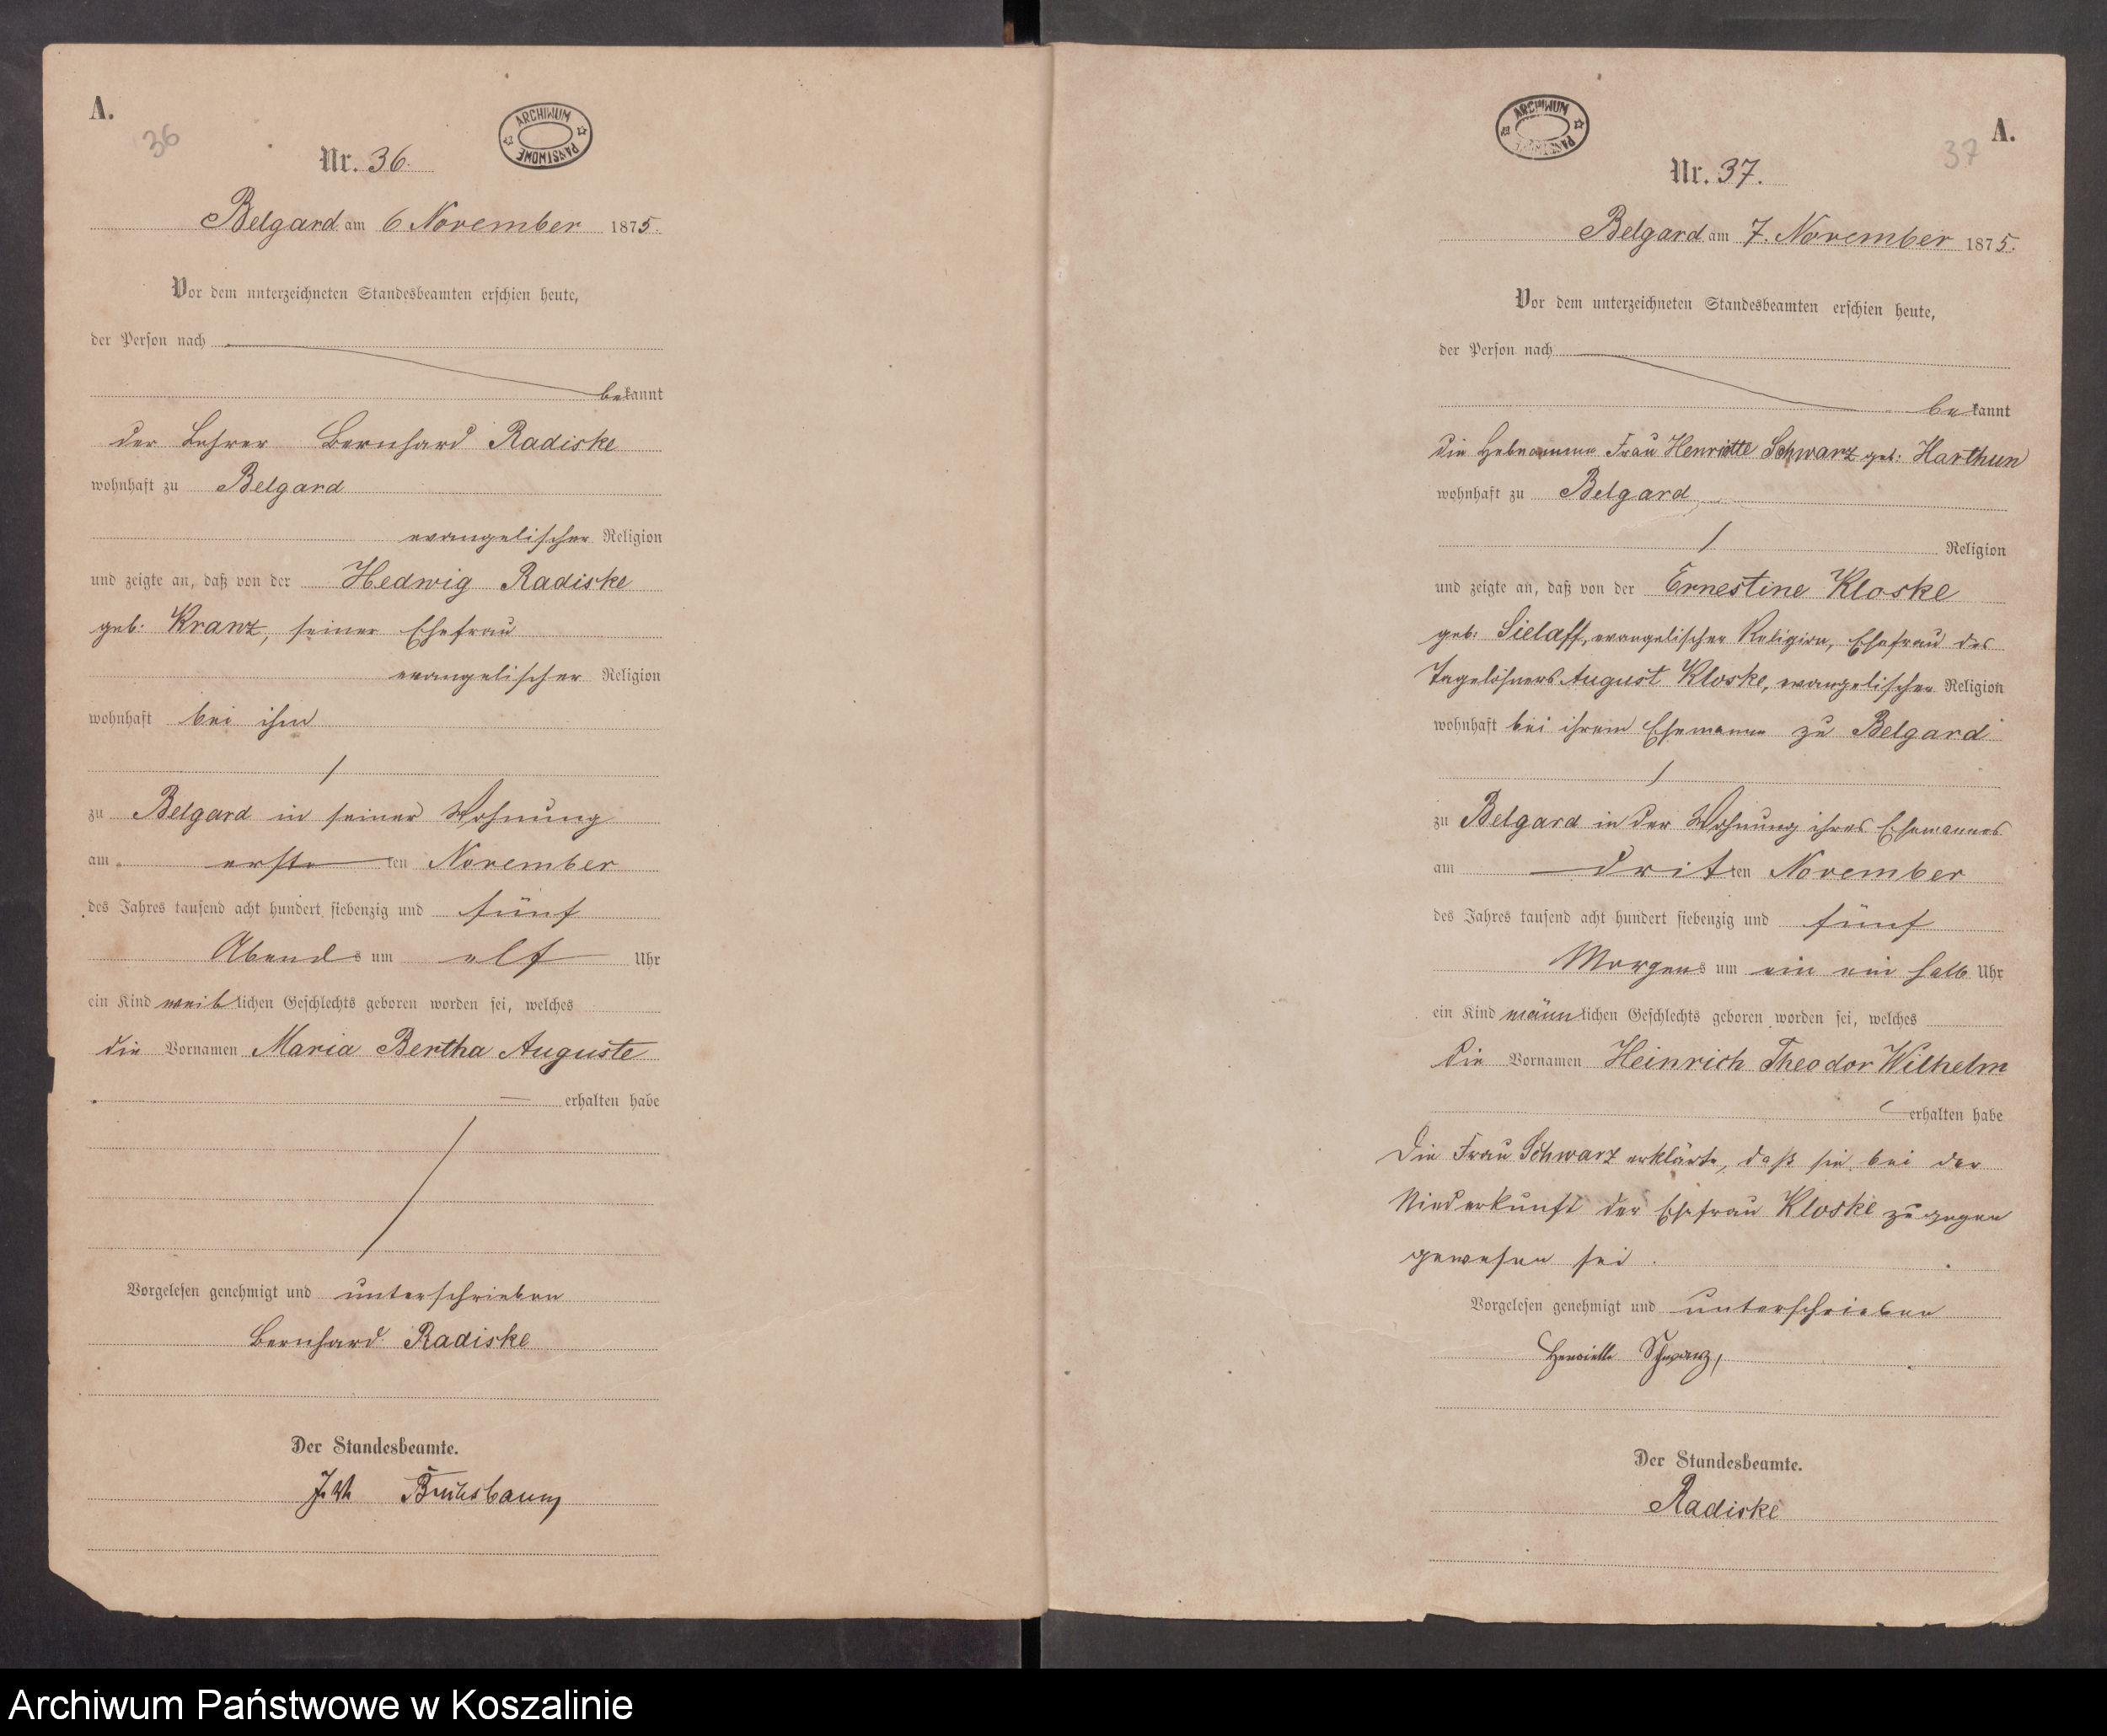 A.
36
Nr. 36.
ARCHIWUM PAŃSTWOWE
Belgard am 6 November 1875.
Vor dem unterzeichneten Standesbeamten erschien heute,
der Person nach
bekannt
der Lehrer Bernhard Radiske
wohnhaft zu Belgard
evangelischer Religion
und zeigte an, daß von der Hedwig Radiske
geb: Kranz, seiner Ehefrau
evangelischer Religion
wohnhaft bei ihm
zu Belgard in seiner Wohnung
am ersten November
des Jahres tausend acht hundert siebenzig und fünf
Abends um elf Uhr
ein Kind weiblichen Geschlechts geboren worden sei, welches
die Vornamen Maria Bertha Auguste
erhalten habe
Vorgelesen genehmigt und unterschrieben
Bernhard Radiske
Der Standesbeamte.
A.
37
Nr. 37.
ARCHIWUM PAŃSTWOWE
Belgard am 7. November 1875.
Vor dem unterzeichneten Standesbeamten erschien heute,
der Person nach
bekannt
die Hebeamme Frau Henriette Schwarz geb: Harthun
wohnhaft zu Belgard
Religion
und zeigte an, daß von der Ernestine Kloske
geb: Sielaff, evangelischer Religion, Ehefrau des
Tagelöhners August Kloske, evangelischer Religion
wohnhaft bei ihrem Ehemanne zu Belgard
zu Belgard in der Wohnung ihres Ehemannes
am dritten November
des Jahres tausend acht hundert siebenzig und fünf
Morgens um ein ein halb Uhr
ein Kind männlichen Geschlechts geboren worden sei, welches
die Vornamen Heinrich Theodor Wilhelm
erhalten habe
Die Frau Schwarz erklärte, daß sie bei der
Niederkunft der Ehefrau Kloske zugegen
gewesen sei.
Vorgelesen genehmigt und unterschrieben
Henriette Schwarz,
Der Standesbeamte.
Radiske
Archiwum Państwowe w Koszalinie